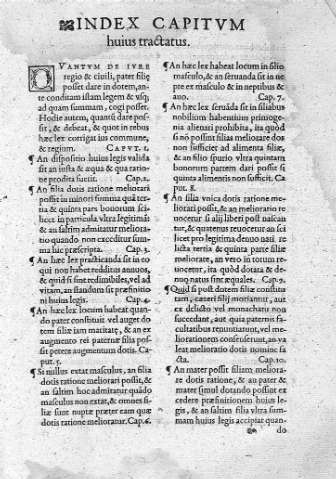 INDEX CAPITVM
huius tractatus.
QVANTVM DE IVRE
regio & ciuili, pater filię
posset dare in dotem, an-
te conditam istam legem & vsq;
ad quam summam, cogi posset.
Hodie autem, quantū dare pos-
sit, & debeat, & quot in rebus
hæc lex corrigat ius commune,
& regium. CAPVT. 1.
¶ An dispositio huius legis valida
sit an iusta & æqua & qua ratio-
ne prodita fuerit. Cap. 2.
¶ An filia dotis ratione meliorari
possit in minori summa quā ter-
tia & quinta pars bonorum sci-
licet in particula vltra legitimā
& an saltim admitatur meliora-
tio quando non exceditur sum-
ma hic præscripta. Cap. 3.
¶ An hæc lex practicanda sit in eo
qui non habet redditus annuos,
& quid si sunt redimibiles, vel ad
vitam, an fraudem sit præfinitio-
ni huius legis. Cap. 4.
¶ An hæc lex locum habeat quan-
do pater constituit vel auget do
tem filiæ iam maritatę, & an ex
augmento rei paternæ filia pos-
sit petere augmentum dotis. Ca-
put. 5.
¶ Si nullus extat masculus, an filia
dotis ratione meliorari possit, &
an saltim hoc admitatur quādo
masculus non extat, & omnes fi-
liæ sunt nuptæ præter eam quæ
dotis ratione melioratur. Cap. 6.
¶ An hæc lex habeat locum in solo
masculo, & an seruanda sit in ne-
pte ex masculo & in neptibus &
auo. Cap. 7.
¶ An hæc lex seruāda sit in filiabus
nobilium habentium primoge-
nia alienari prohibita, ita quòd
si nō possint filias meliorare dos
non sufficiet ad alimenta filiæ,
& an filio spurio vltra quintam
honorum partem dari possit si
quinta alimentis non sufficit. Ca
put. 8.
¶ An filia vnica dotis ratione me-
liorari possit, & an melioratio re
uocetur si alij liberi post nascan
tur, & quatenus reuocetur an sci
licet pro legitima denuo nati re
licta tertia & quinta parte filiæ
meliorate, an vero in totum re-
uocetur, ita quòd dotata & de-
nuo natus sint æquales. Cap. 9.
¶ Quid si post dotem filiæ constitu
tam, cæteri filij moriantur, aut
ex delicto vel monachatu non
succedant, aut quia paternis fa-
cultatibus renuntiauit, vel me-
liorationem consenserunt, an va
leat melioratio dotis nomine fa
cta. Cap. 10.
¶ An mater possit filiam meliora-
re dotis ratione, & an pater &
mater simul dotando possint ex
cedere præfinitionem huius le-
gis, & an saltim filia vltra sum-
mam huius legis accipiat quan-
do